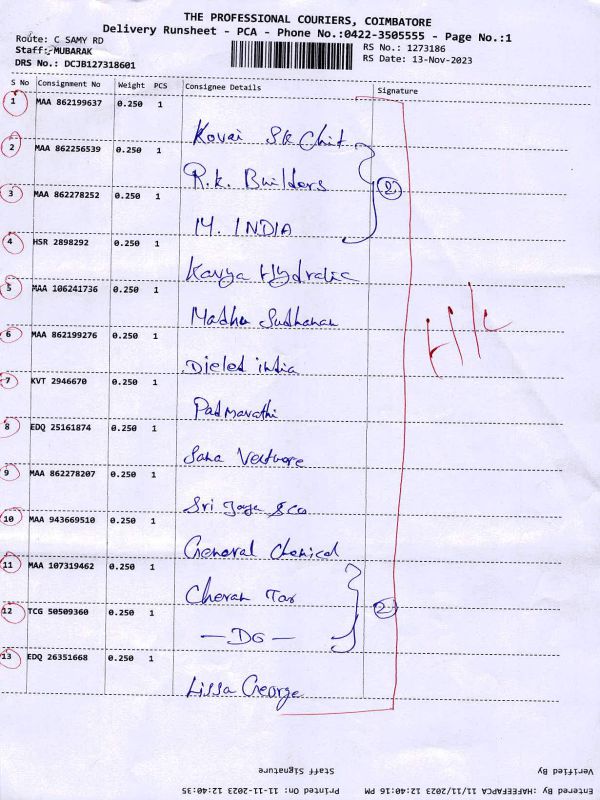 THE PROFESSIONAL COURIERS, COIMBATORE
Delivery Runsheet - PCA - Phone No.:0422-3505555 - Page No.:1
Route: C SAMY RD
Staff:-MUBARAK
DRS No.: DCJB127318601
RS No.: 1273186
RS Date: 13-Nov-2023
S No Consignment No Weight PCS Consignee Details Signature
1 MAA 862199637 0.250 1
Kovai SK Chit
2 MAA 862256539 0.250 1
R.k. Builders
3 MAA 862278252 0.250 1
M. INDIA
2
4 HSR 2898292 0.250 1
Kavya Hydralic
5 MAA 106241736 0.250 1
Madhu Sudhanan
6 MAA 862199276 0.250 1
Dieled india
7 KVT 2946670 0.250 1
Padmavathi
8 EDQ 25161874 0.250 1
Sana
9 MAA 862278207 0.250 1
Sri Jaya & co
10 MAA 943669510 0.250 1
General Chemical
11 MAA 107319462 0.250 1
Cheran Tax
12 TCG 50509360 0.250 1
— DO —
2
13 EDQ 26351668 0.250 1
Lissa George
Verified By
Staff Signature
Entered By :HAFEEFAPCA 11/11/2023 12:40:16 PM
Printed On: 11-11-2023 12:40:35